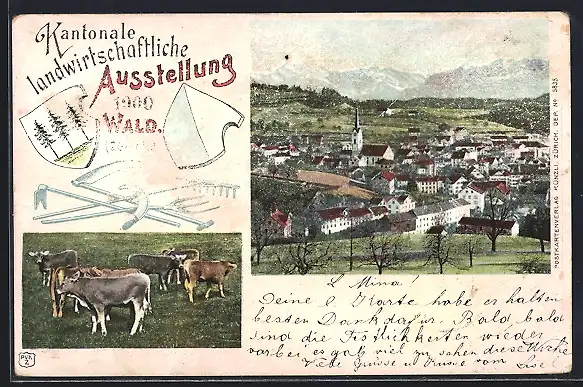 Kantonale
landwirtschaftliche
Ausstellung
1900
WALD.
(Zürich)
POSTKARTENVERLAG KÜNZLI, ZÜRICH. DEP. No 5825.
PVKZ
L. Mina!
Deine l. Karte habe es halten
besten Dank dafür. Bald, bald
sind die Festlichkeiten wieder
vorbei, es gab viel zu sehen diese Woche
Viele Grüsse u. Küsse von Lise